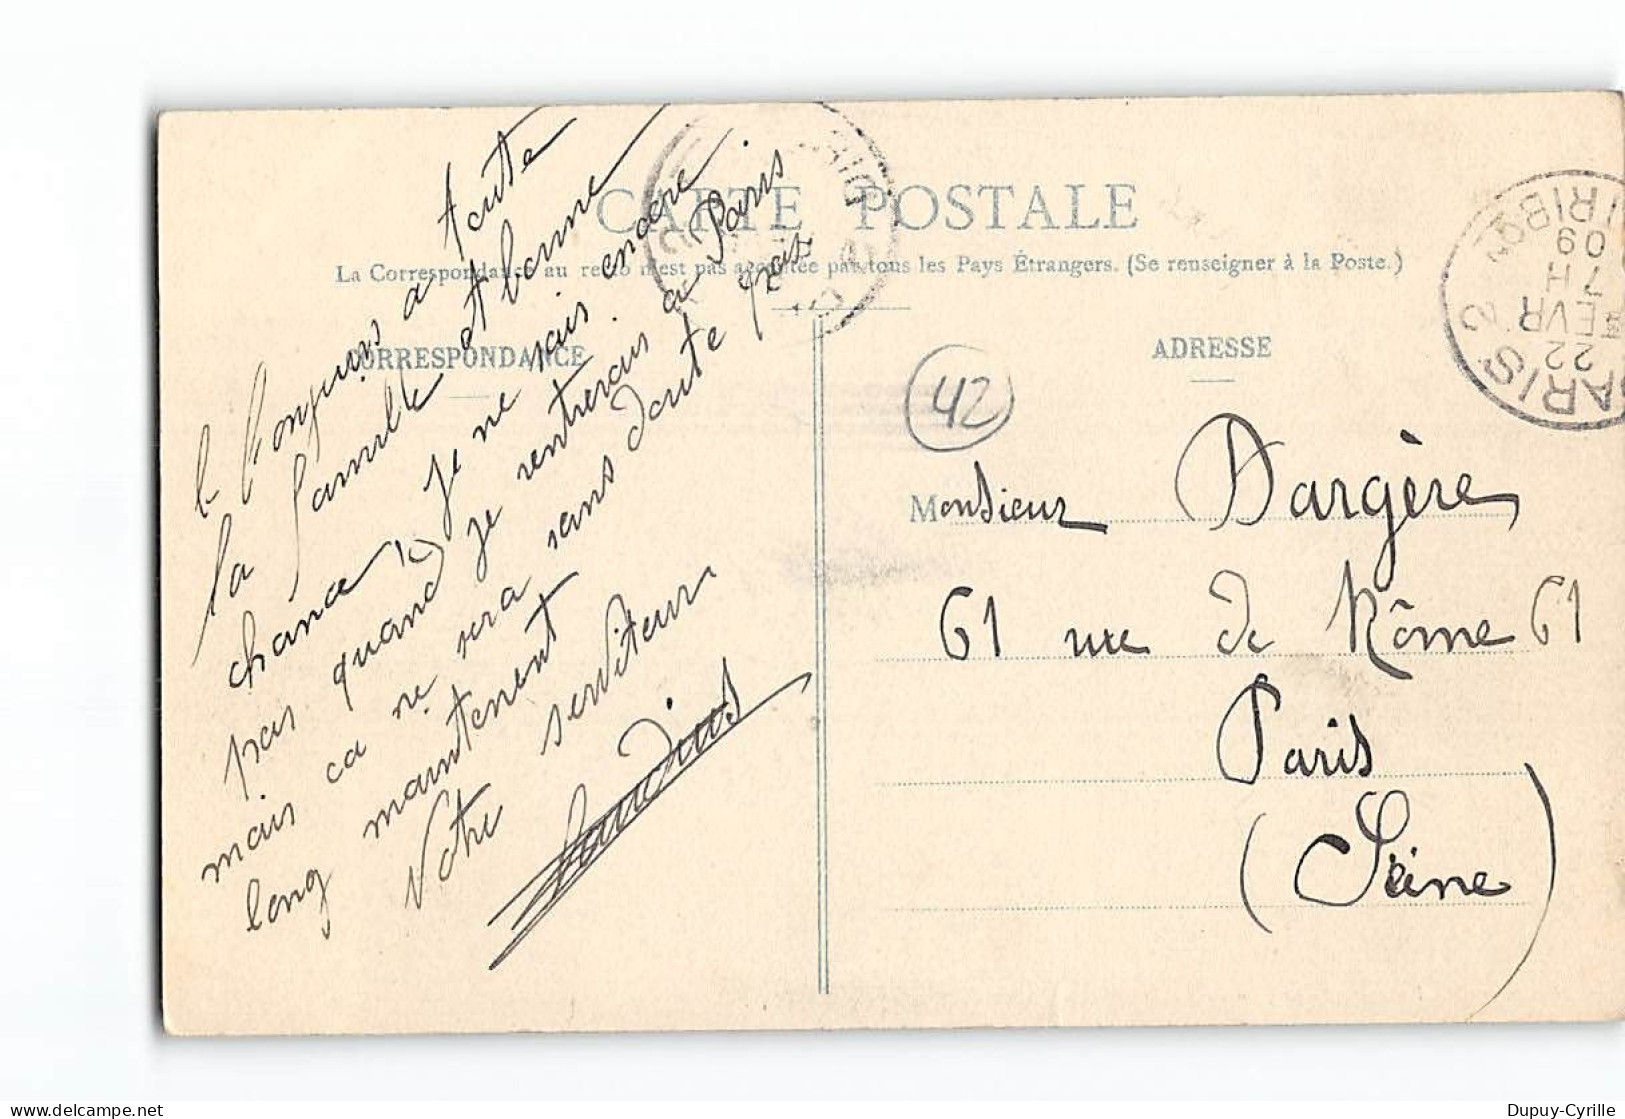 CARTE POSTALE
La Correspondance au recto n'est pas acceptée par tous les Pays Étrangers. (Se renseigner à la Poste.)
CORRESPONDANCE
toute
la famille et bonne
chance je ne sais encore
pas quand je rentrerais a Paris
mais ca ne sera sans doute pas
long maintenant
Votre serviteur
ADRESSE
42
Monsieur Dargère
61 rue de Rôme 61
Paris
(Seine)
PARIS
22
FEVR
7 H
09
Dupuy-Cyrille